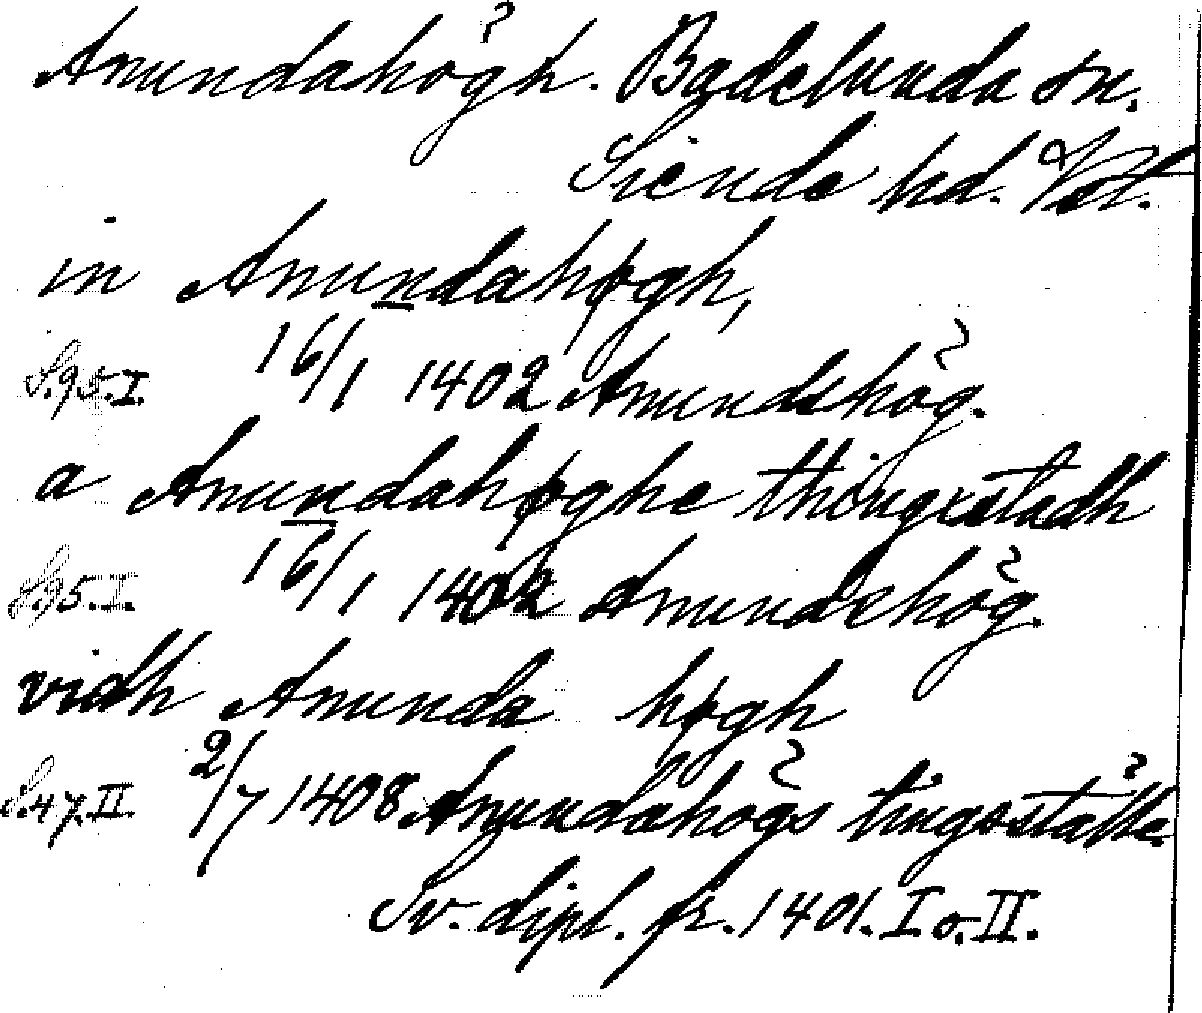 Anundahögh. Badelunda sn.
Siende hd. Vstl.
in Anundahøgh,
S. 95. I. 16/1 1402 Anundshög.
a Anundahøghe thingxstadh
S. 95. I. 16/1 1402 Anundshög.
vidh Anunda høgh
S. 47. II. 2/7 1408 Anundahögs tingsställe.
Sv. dipl. fr. 1401. I o. II.